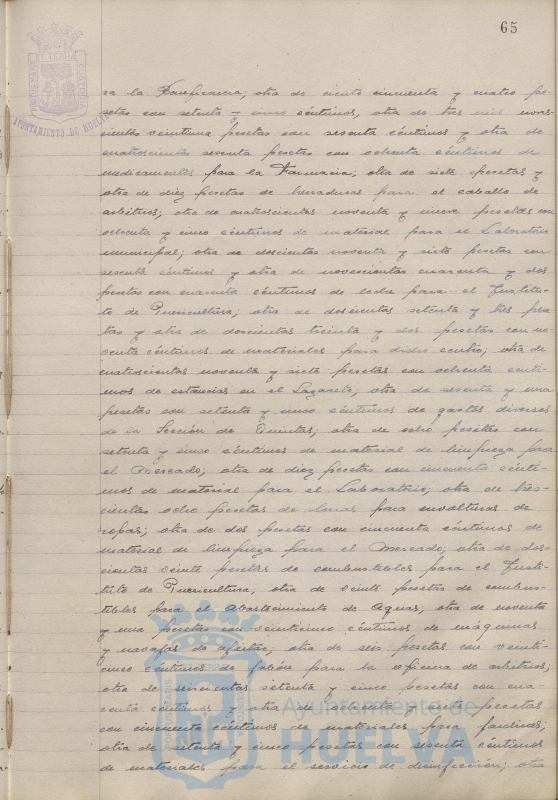 65
AYUNTAMIENTO DE HUELVA
PORTUS MARIS ET TERRAE CUSTODIA
ra la Panificadora; otra de ciento cincuenta y cuatro pe-
setas con setenta y cinco céntimos, otra de tres mil nove-
cientas veintiuna pesetas con sesenta céntimos y otra de
cuatrocientas sesenta pesetas con ochenta céntimos de
medicamentos para la Farmacia; otra de siete pesetas y
otra de diez pesetas de herraduras para el caballo de
arbitrios; otra de cuatrocientas noventa y nueve pesetas con
ochenta y cinco céntimos de material para el Laboratorio
municipal; otra de doscientas noventa y siete pesetas con
sesenta céntimos y otra de novecientas cuarenta y dos
pesetas con cuarenta céntimos de leche para el Institu-
to de Puericultura; otra de doscientas setenta y tres pese-
tas y otra de doscientas treinta y dos pesetas con no-
venta céntimos de materiales para dicho centro; otra de
cuatrocientas noventa y siete pesetas con ochenta cénti-
mos de estancias en el Lazareto; otra de sesenta y una
pesetas con setenta y cinco céntimos de gastos diversos
de la Sección de Quintas; otra de ocho pesetas con
setenta y cinco céntimos de material de limpieza para
el Mercado; otra de diez pesetas con cincuenta cénti-
mos de material para el Laboratorio; otra de tres-
cientas ocho pesetas de lanas para envolturas de
ropas; otra de dos pesetas con cincuenta céntimos de
materias de limpieza para el Mercado; otra de dos-
cientas veinte pesetas de combustibles para el Insti-
tuto de Puericultura; otra de veinte pesetas de combus-
tibles para el Abastecimiento de Aguas; otra de noventa
y una pesetas con veinticinco céntimos de máquinas
y navajas de afeitar; otra de seis pesetas con veinti-
cinco céntimos de jabón para la oficina de arbitrios;
otra de setenta y cinco pesetas con cua-
renta céntimos y otra de ochenta y siete pesetas
con cincuenta céntimos de materiales para jardines;
otra de setenta y cinco pesetas con sesenta céntimos
de materiales para el servicio de desinfección; otra
Ayuntamiento de
HUELVA